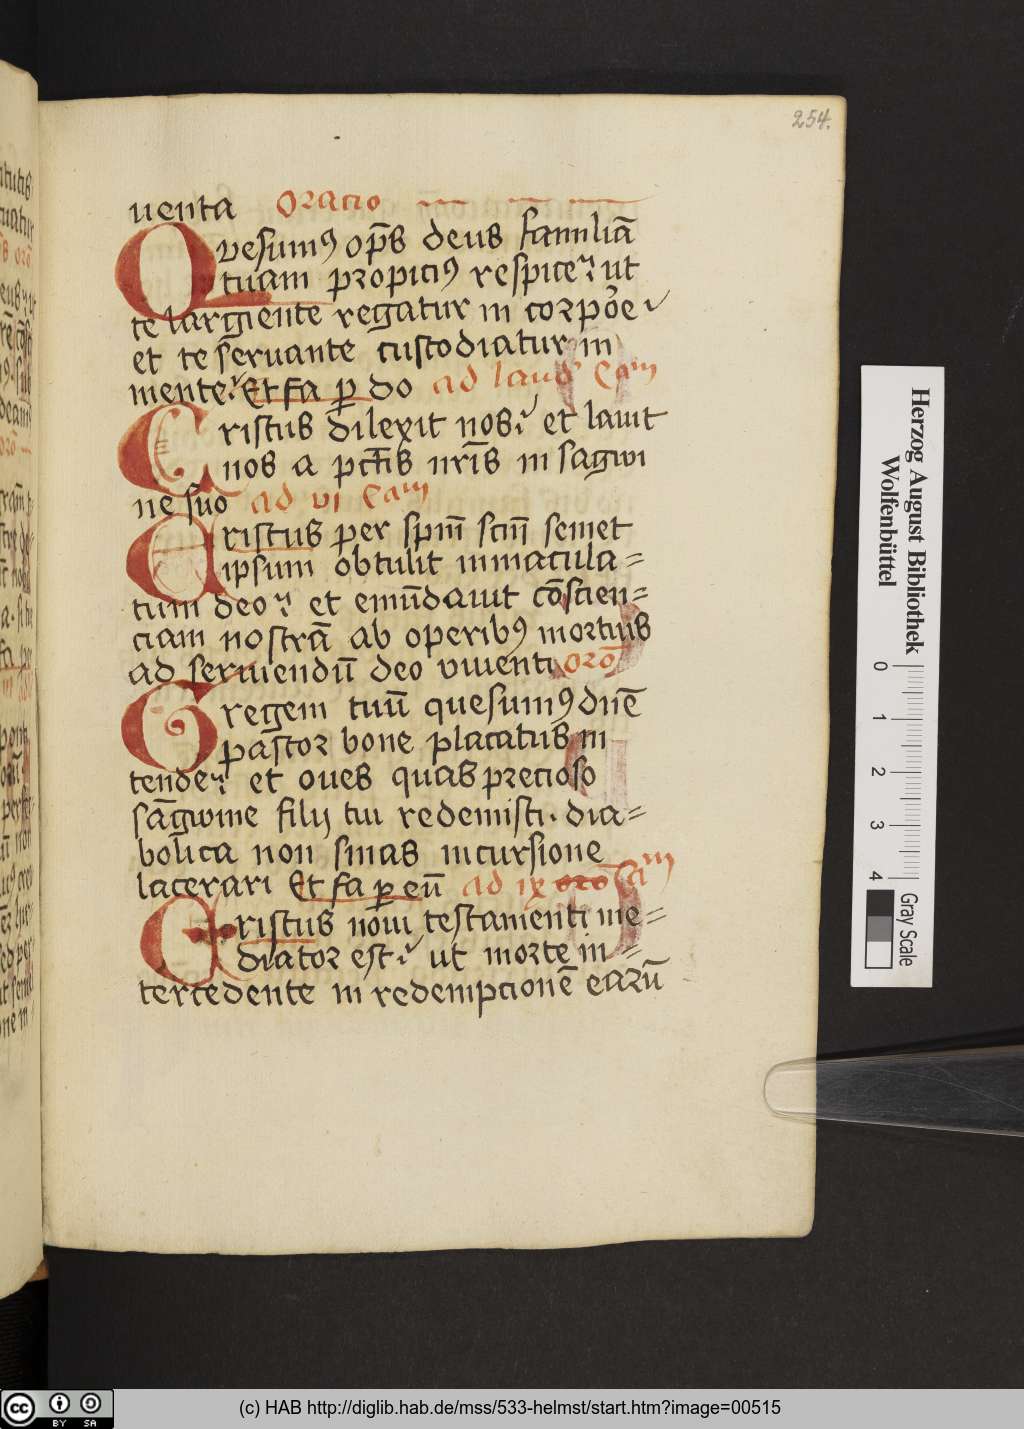 254.
uenta Oracio
Qvesumꝰ op̄s deus familiā
tuam propiciꝰ respice ut
te largiente regatur in corpore
et te seruante custodiatur in
mente Et fa ꝑ do ad laud' Cam
Cristus dilexit nos et lauit
nos a pctīs nrīs in sagwi
ne suo ad vi Cam
Cristus per spm̄ scm̄ semet
ipsum obtulit inmacula=
tum deo et emūdauit cōscien=
ciam nostrā ab operibꝰ mortuis
ad seruiendū deo viuenti orō
Gregem tuū quesumꝰ dnē
pastor bone placatus in
tende et oues quas precioso
sāgwine filij tui redemisti. dia=
bolica non sinas incursione
lacerari Et fa ꝑ eū ad ix orō Cam
Cristus noui testamenti me=
diator est ut morte in=
tercedente in redempcionē earū
Herzog August Bibliothek
Wolfenbüttel
0 1 2 3 4
Gray Scale
cc BY SA
(c) HAB http://diglib.hab.de/mss/533-helmst/start.htm?image=00515